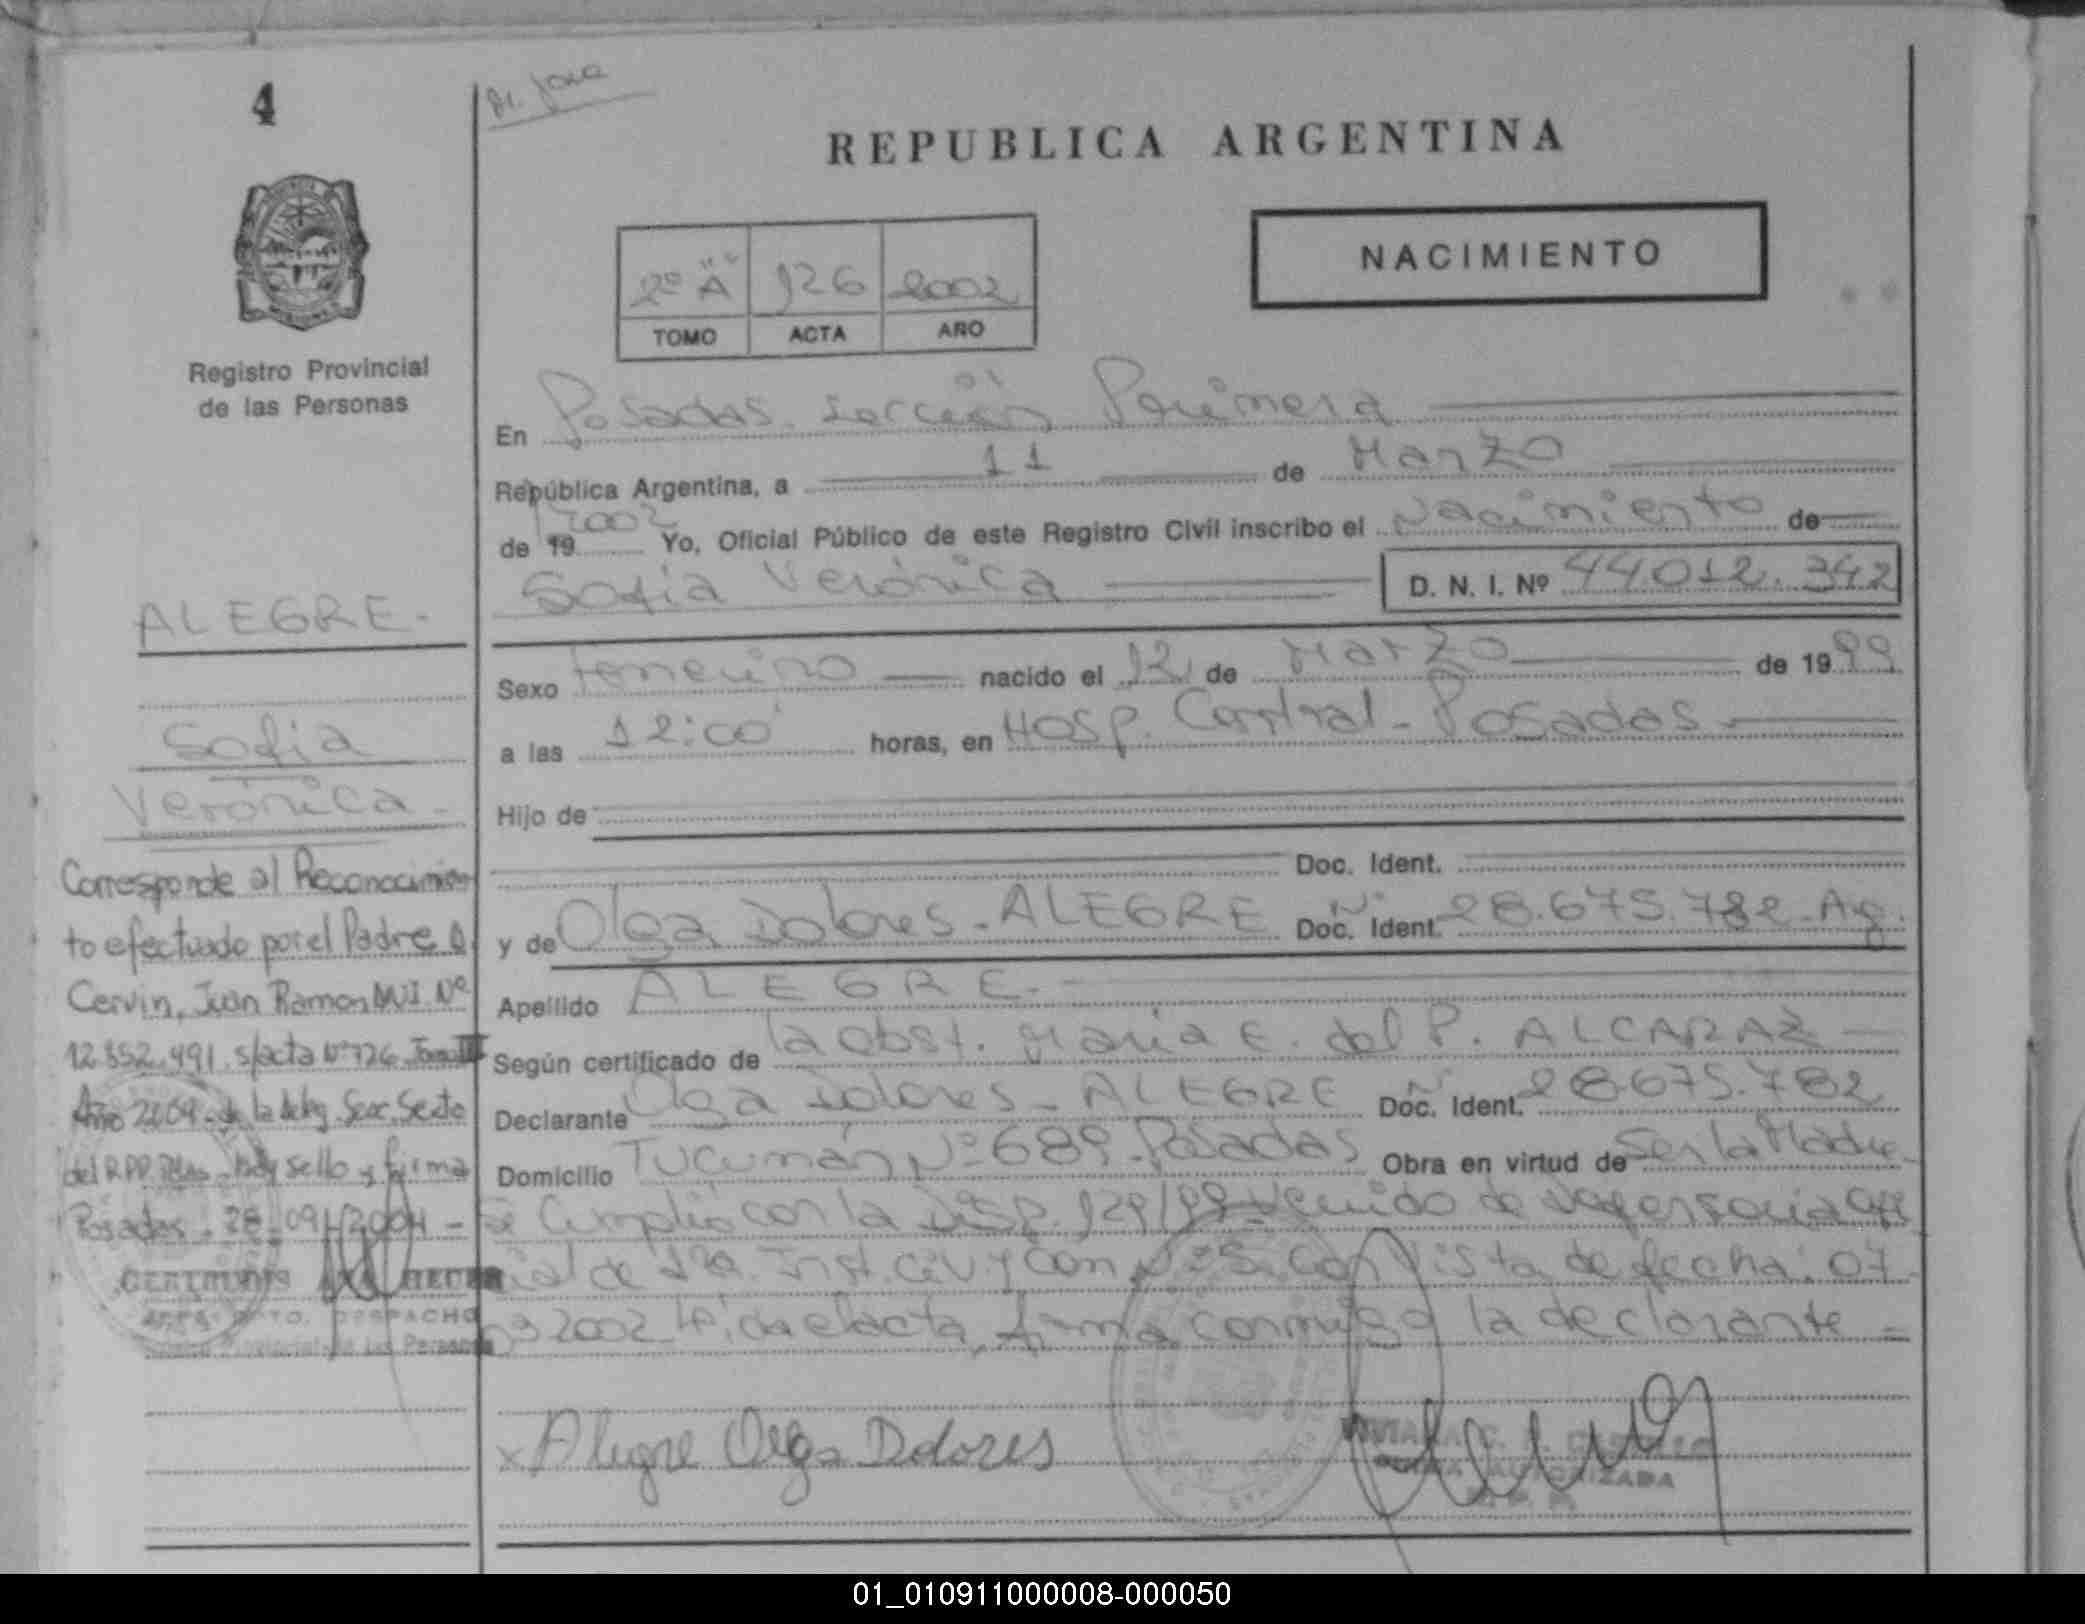 4
REPUBLICA ARGENTINA
NACIMIENTO
2º "A" 126 2002
TOMO ACTA AÑO
Registro Provincial
de las Personas
En Posadas sección Primera
República Argentina, a 11 de Marzo
de 19 2002 Yo, Oficial Público de este Registro Civil inscribo el Nacimiento de
Sofia Verónica D. N. I. Nº 44.012.342
ALEGRE.
Sofia
Verónica.
Sexo femenino nacido el 12 de Marzo de 1999
a las 12:00 horas, en Hosp. Central - Posadas
Hijo de
Doc. Ident.
y de Olga Dolores - ALEGRE Doc. Ident. 28.675.782 - Ag.
Apellido ALEGRE.
Según certificado de la obst. Maria E. del P. ALCARAZ
Declarante Olga Dolores - ALEGRE Doc. Ident. 28.675.782
Domicilio Tucumán Nº 689 - Posadas Obra en virtud de Ser la Madre
Se Cumplió con la Disp. 129/99 de
de 1ra. Inst. Civ y Com Nº 5 con vista de fecha: 07
2002 Leída el acta, firma conmigo la declarante -
Corresponde al Reconocimien
to efectuado por el Padre D.
Cervin, Juan Ramon MI Nº
12.852.491. s/acta Nº 726 Tomo III
Año 2004 - de la deleg. Secc. Sexta
del R.P.P. Pdas - hay sello y firma
Posadas - 28 - 09 - 2004 -
DPTO. DESPACHO
Registro Provincial de las Personas
x Alegre Olga Dolores
FIRMA AUTORIZADA
01_010911000008-000050